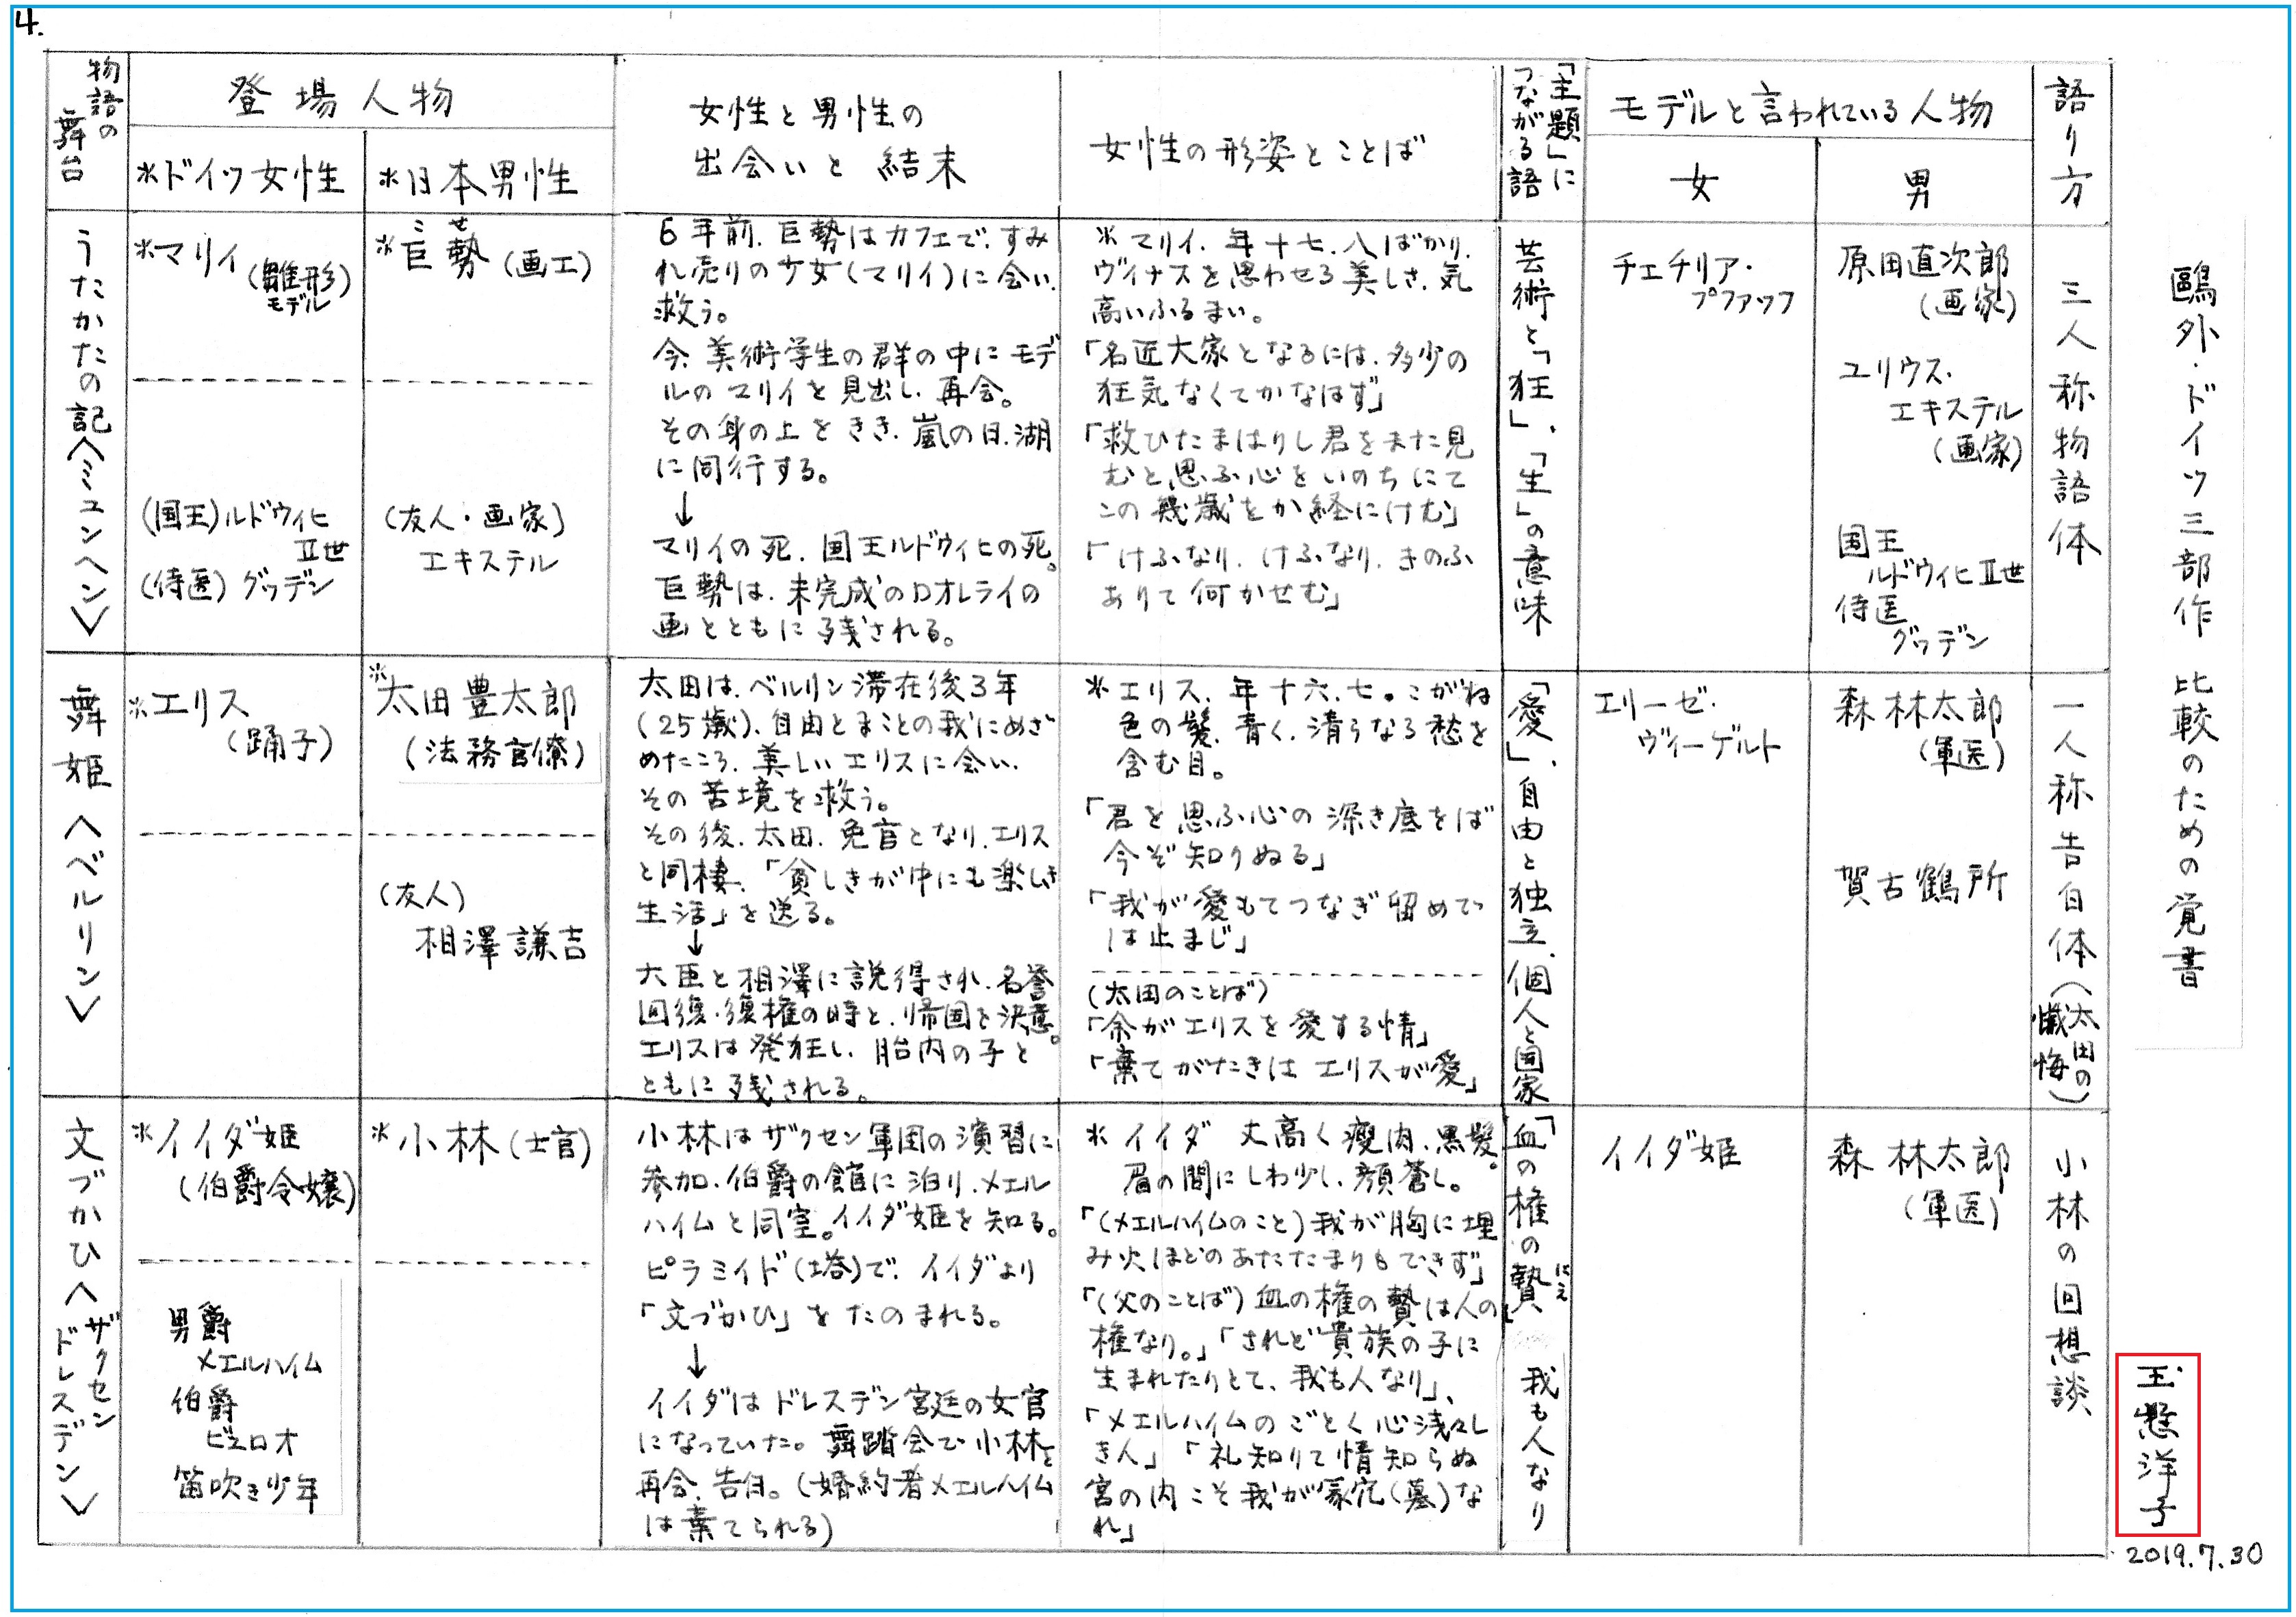 4.
鷗外・ドイツ三部作 比較のための覚書
物語の
舞台
登場人物
*ドイツ女性
*日本男性
女性と男性の
出会いと 結末
女性の形姿とことば
「主題」に
つながる語
モデルと言われている人物
女
男
語り方
うたかたの記〈ミュンヘン〉
*マリイ(雛形)
モデル
(国王)ルドウィヒ
II世
(侍医)グッデン
こせ
*巨勢(画工)
(友人・画家)
エキステル
6年前、巨勢はカフェで、すみ
れ売りの少女(マリイ)に会い、
救う。
今、美術学生の群の中にモデ
ルのマリイを見出し、再会。
その身の上をきき、嵐の日、湖
に同行する。
↓
マリイの死、国王ルドウィヒの死。
巨勢は、未完成のロオレライの
画とともに残される。
*マリイ、年十七、八ばかり、
ヴィナスを思わせる美しさ、気
高いふるまい。
「名匠大家となるには、多少の
狂気なくてかなはず」
「救ひたまはりし君をまた見
むと思ふ心をいのちにて
この幾歳をか経にけむ」
「けふなり、けふなり、きのふ
ありて何かせむ」
芸術と「狂」、「生」の意味
チェチリア・
プファッフ
原田直次郎
(画家)
ユリウス・
エキステル
(画家)
国王
ルドウィヒII世
侍医
グッデン
三人称物語体
舞姫〈ベルリン〉
*エリス
(踊子)
*太田豊太郎
(法務官僚)
(友人)
相澤謙吉
太田は、ベルリン滞在後3年
(25歳)、自由とまことの我にめざ
めたころ、美しいエリスに会い、
その苦境を救う。
その後、太田、免官となり、エリス
と同棲、「貧しきが中にも楽しき
生活」を送る。
↓
大臣と相澤に説得され、名誉
回復・復権の時と、帰国を決意。
エリスは発狂し、胎内の子と
ともに残される。
*エリス、年十六、七。こがね
色の髪、青く、清らなる愁を
含む目。
「君を思ふ心の深き底をば
今ぞ知りぬる」
「我が愛もてつなぎ留めで
は止まじ」
(太田のことば)
「余がエリスを愛する情」
「棄てがたきはエリスが愛」
「愛」、自由と独立、個人と国家
エリーゼ・
ヴィーゲルト
森林太郎
(軍医)
賀古鶴所
一人称告白体(太田の
懺悔)
文づかひ〈ザクセン
ドレスデン〉
*イイダ姫
(伯爵令嬢)
男爵
メエルハイム
伯爵
ビュロオ
笛吹き少年
*小林(士官)
小林はザクセン軍団の演習に
参加、伯爵の館に泊り、メエル
ハイムと同室。イイダ姫を知る。
ピラミイド(塔)で、イイダより
「文づかひ」をたのまれる。
↓
イイダはドレスデン宮廷の女官
になっていた。舞踏会で小林と
再会、告白。(婚約者メエルハイム
は棄てられる)
*イイダ 丈高く瘦肉、黒髪。
眉の間にしわ少し、顔蒼し。
「(メエルハイムのこと)我が胸に埋
み火ほどのあたたまりもできず」
「(父のことば)血の権の贄は人の
権なり。」「されど貴族の子に
生まれたりとて、我も人なり」、
「メエルハイムのごとく心浅々し
き人」「礼知りて情知らぬ
宮の内こそ我が冢穴(墓)な
れ」
「血の権の贄」 我も人なり
にえ
イイダ姫
森 林太郎
(軍医)
小林の回想談
玉懸洋子
2019.7.30